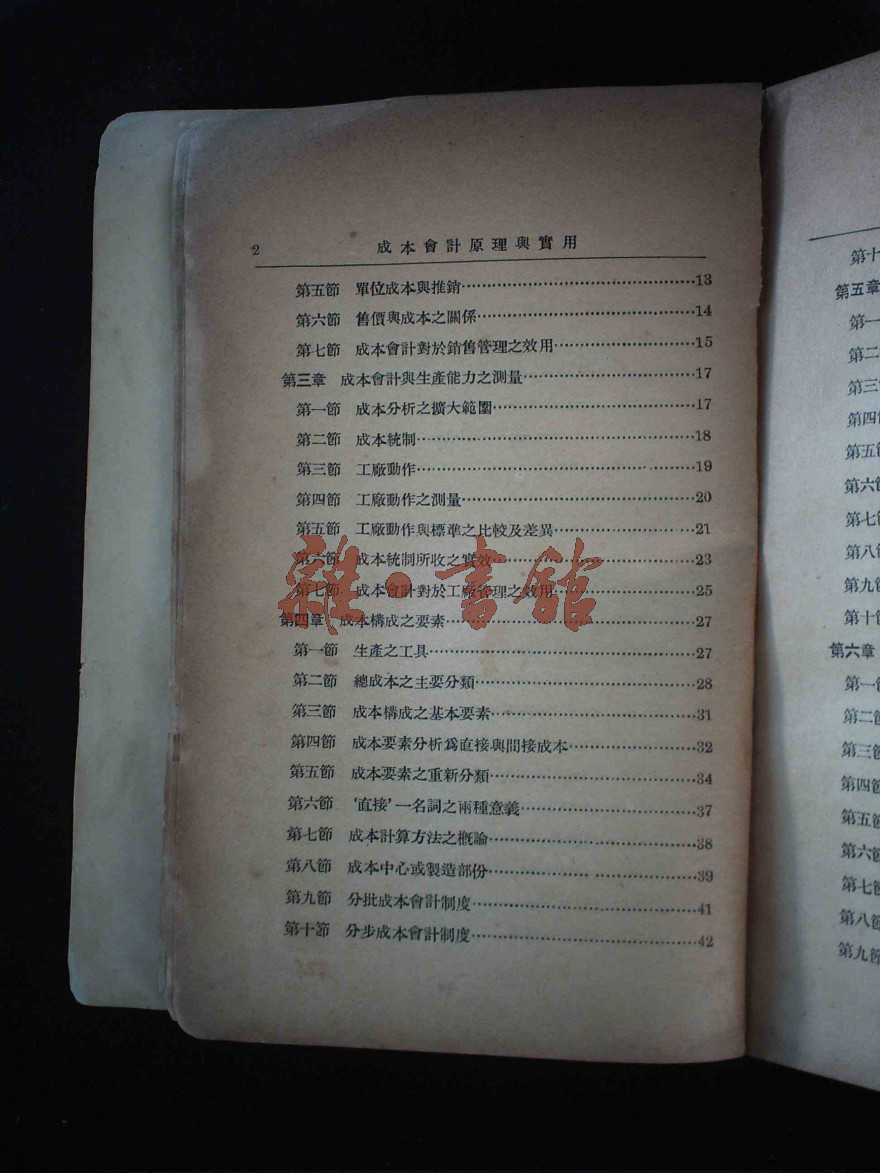 2 成本會計原理與實用
第五節 單位成本與推銷……13
第六節 售價與成本之關係……14
第七節 成本會計對於銷售管理之效用……15
第三章 成本會計與生產能力之測量……17
第一節 成本分析之擴大範圍……17
第二節 成本統制……18
第三節 工廠動作……19
第四節 工廠動作之測量……20
第五節 工廠動作與標準之比較及差異……21
第六節 成本統制所收之實效……23
第七節 成本會計對於工廠管理之效用……25
第四章 成本構成之要素……27
第一節 生產之工具……27
第二節 總成本之主要分類……28
第三節 成本構成之基本要素……31
第四節 成本要素分析爲直接與間接成本……32
第五節 成本要素之重新分類……34
第六節 '直接'一名詞之兩種意義……37
第七節 成本計算方法之概論……38
第八節 成本中心或製造部份……39
第九節 分批成本會計制度……41
第十節 分步成本會計制度……42
雜·書館
第十
第五章
第一
第二
第三
第四
第五
第六
第七
第八
第九
第十
第六章
第一
第二
第三
第四
第五
第六
第七
第八
第九